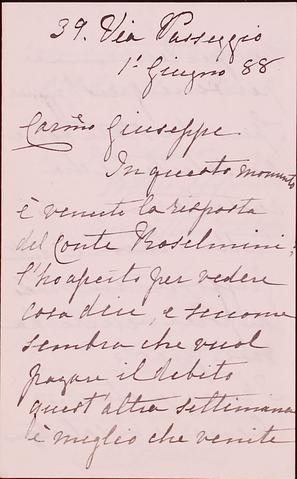 39. Via Passeggio
1º Giugno 88
Carmo Giuseppe
In questo momento
è venuta la risposta
del Conte Roselmini;
l'ho aperto per vedere
cosa dice, e siccome
sembra che vuol
pagare il debito
quest'altra settimana
è meglio che venite